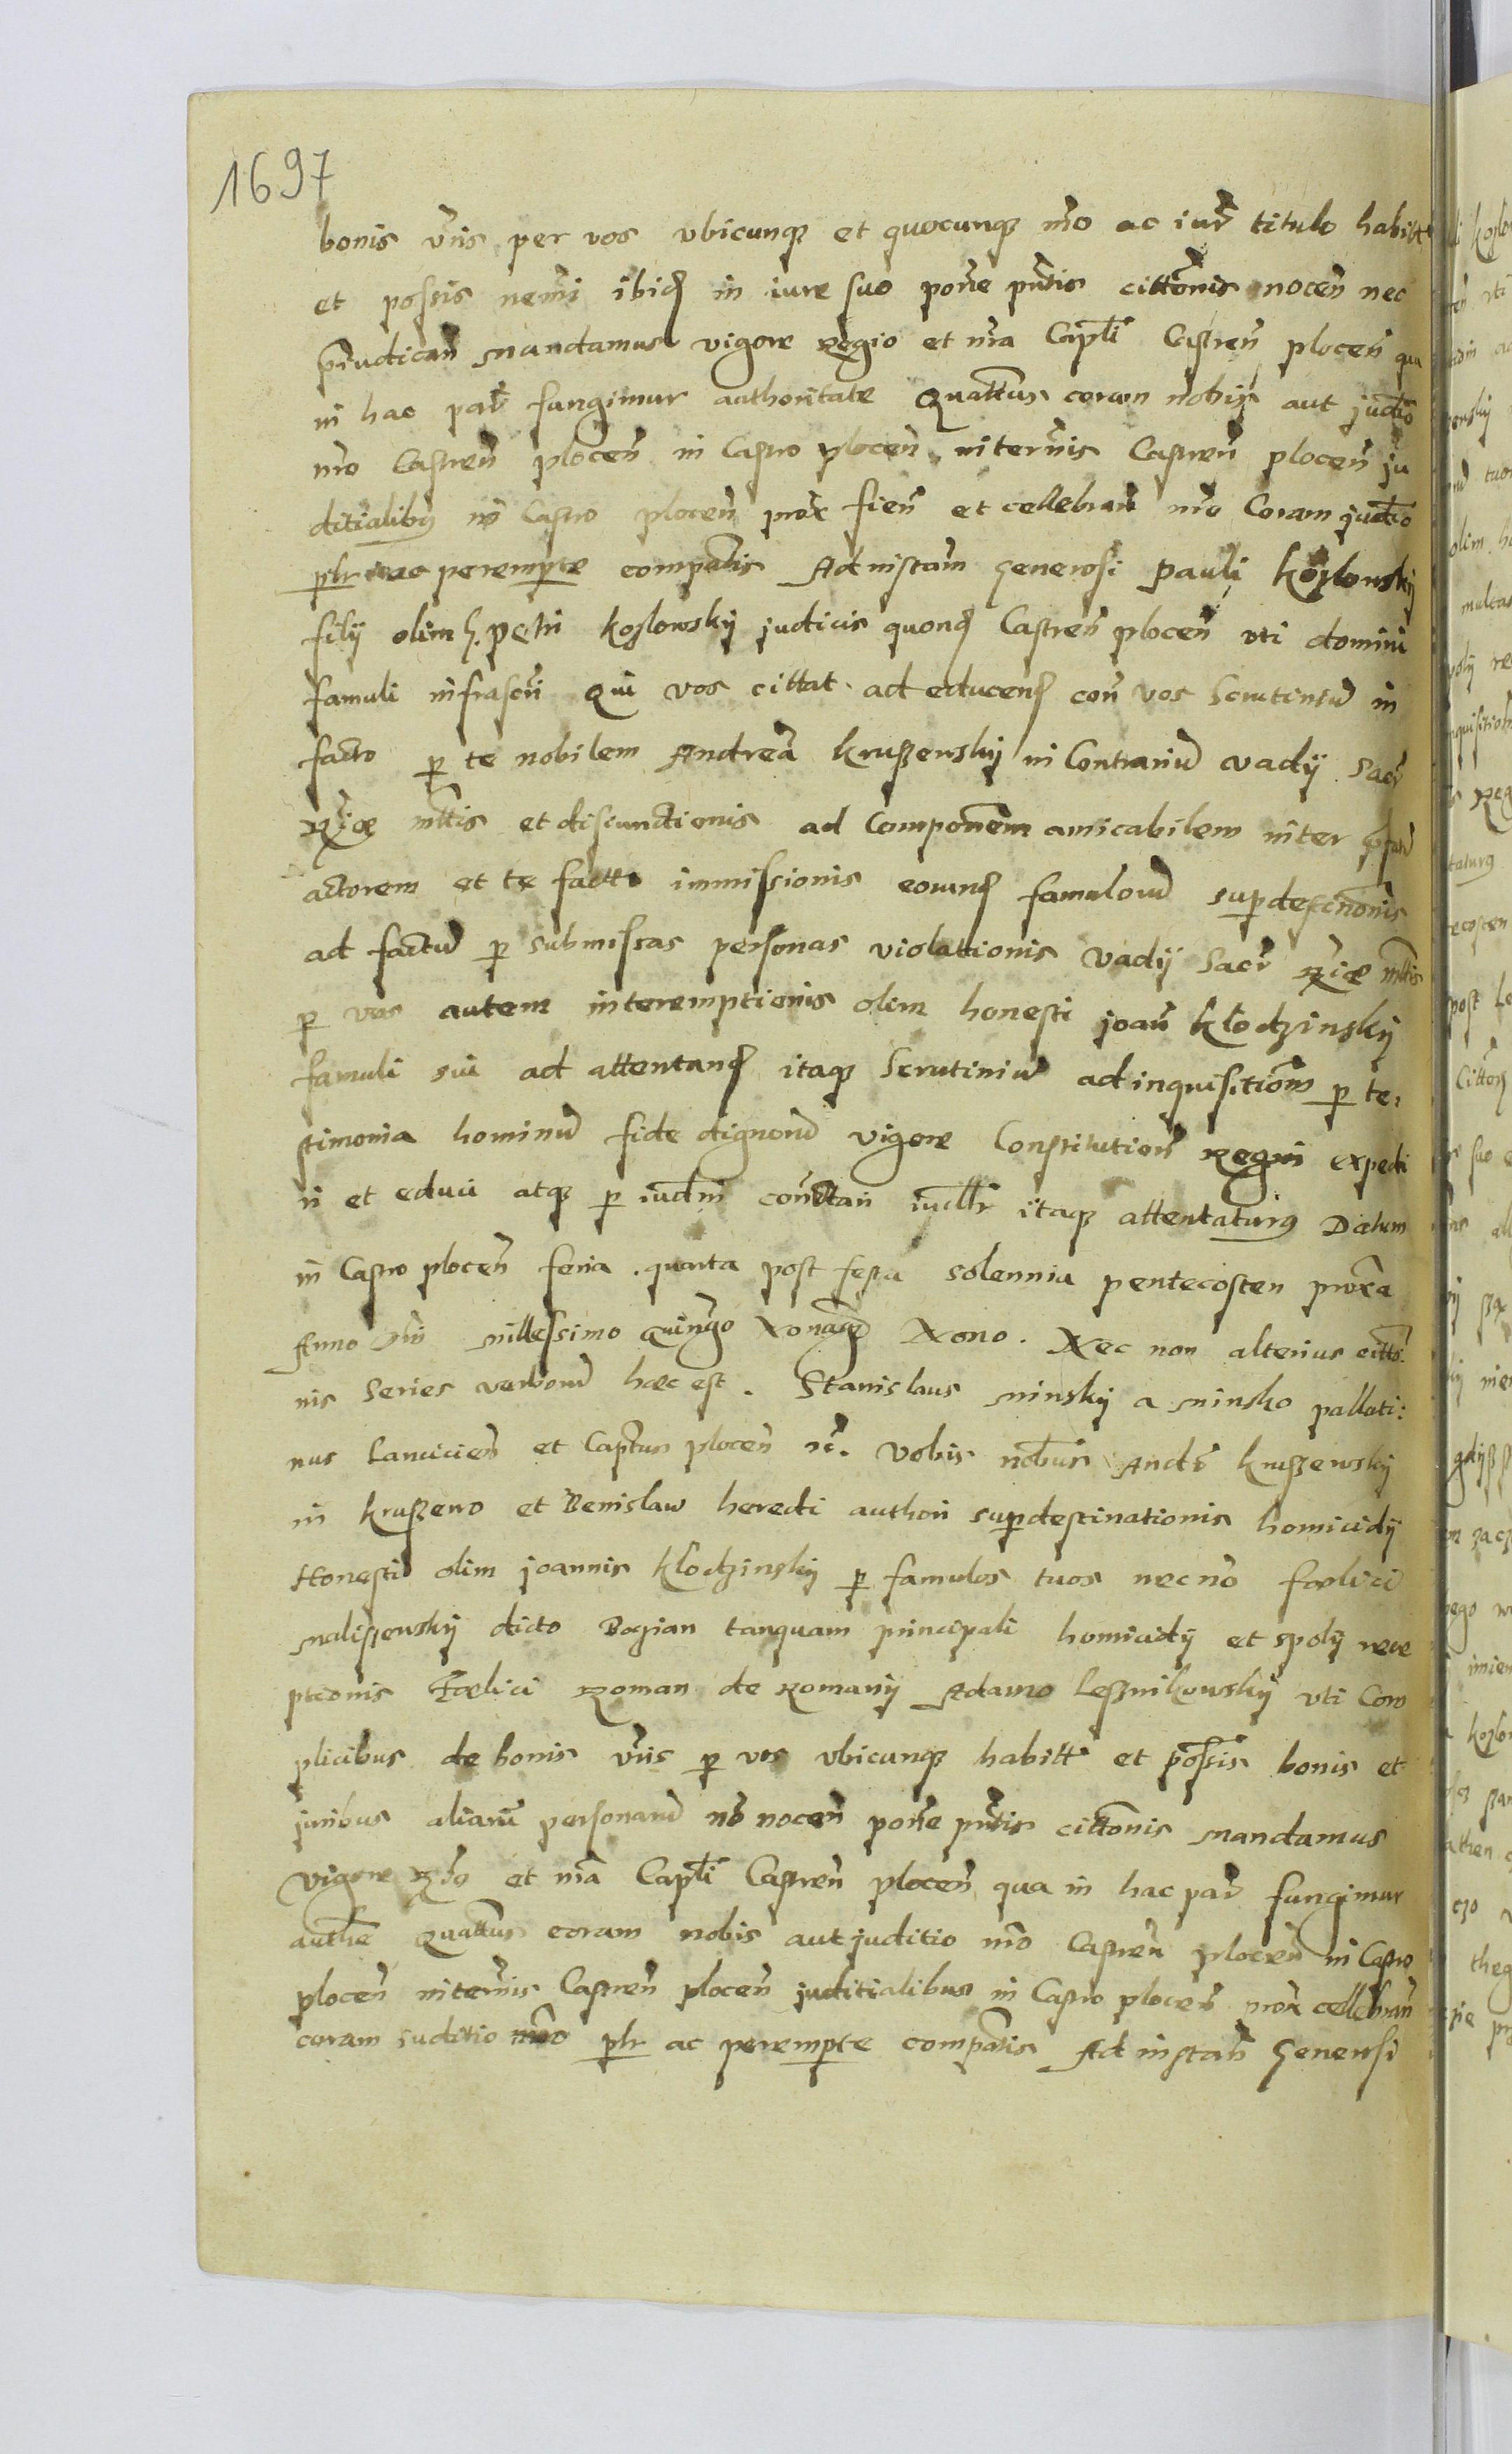 1697
bonis vris per vos vbicunqȝ et quocunqȝ mo ac iure titulo habitt
et possis nemi ibidȝ in iure suo pone pntis cittonis nocen nec
priudican mandamus vigore Regio et nra Captli Castren plocen qua
in hac parte fungimur authoritate Quattus coram nobis aut juditio
nro Castren plocen in Castro plocen in terminis Castren plocen ju
ditialibȝ in Castro plocen prox fien et cellebran nro Coram juditio
plr ac perempte compatis Ad instam generosi Pauli Kozlowskij
filij olim G. Petri Kozlowskij judicis quondȝ Castren plocen vti domini
famuli infrascri Qui vos cittat ad educendȝ con vos Scrutiniu in
facto p te nobilem Andrea Kruszewskij in Contrariu vadij Sacr
Rgiæ mttis et disiunctionis ad Componem amicabilem inter prfatu
actorem et te factt immissionis eorundȝ famuloru superdestinonis
ad factu p submissas personas violattionis vadij Sacr Rgiæ mttis
p vos autem interemptionis olim honesti joan Klodzinskij
famuli sui ad attentandȝ itaqȝ Scrutiniu ad inquisitiom p te,
stimonia hominu fide dignoru vigore Constitution Regni expedi
ri et educi atqȝ p iudm connctari iudlr itaqȝ attentaturȝ Datum
in Castro plocen feria quarta post festa solennia pentecosten proxa
Anno Dni millessimo Quingo Nonagȝ Nono. Nec non alterius citto:
nis Series verboru hæc est. Stanislaus Minskij a Minsko pallati:
nus Lancicien et Captneus plocen etc. Vobis nobilibus Andr Kruszewskij
in Kruszewo et Benislaw heredi authori superdestinationis homicidij
Honesti olim joannis Klodzinskij p famulos tuos necno fœlici
Maliszewskij dicto Bogian tanquam principali homicidij et spolij rece
ptionis Fœlici Roman de Romany Adamo Lesznikowskij vti Com
plicibus de bonis vris p vos vbicunqȝ habitt et possis bonis et
juribus aliaru personaru no nocen pone pntis cittonis Mandamus
vigore Rgio et nra Captli Castren plocen qua in hac part fungimur
authe Quattus coram nobis aut juditio nro Castren plocen in Castro
plocen in terminis Castren plocen juditialibus in Castro plocen prox cellebran
coram juditio nro plr ac perempte compatis Ad instan Generosi